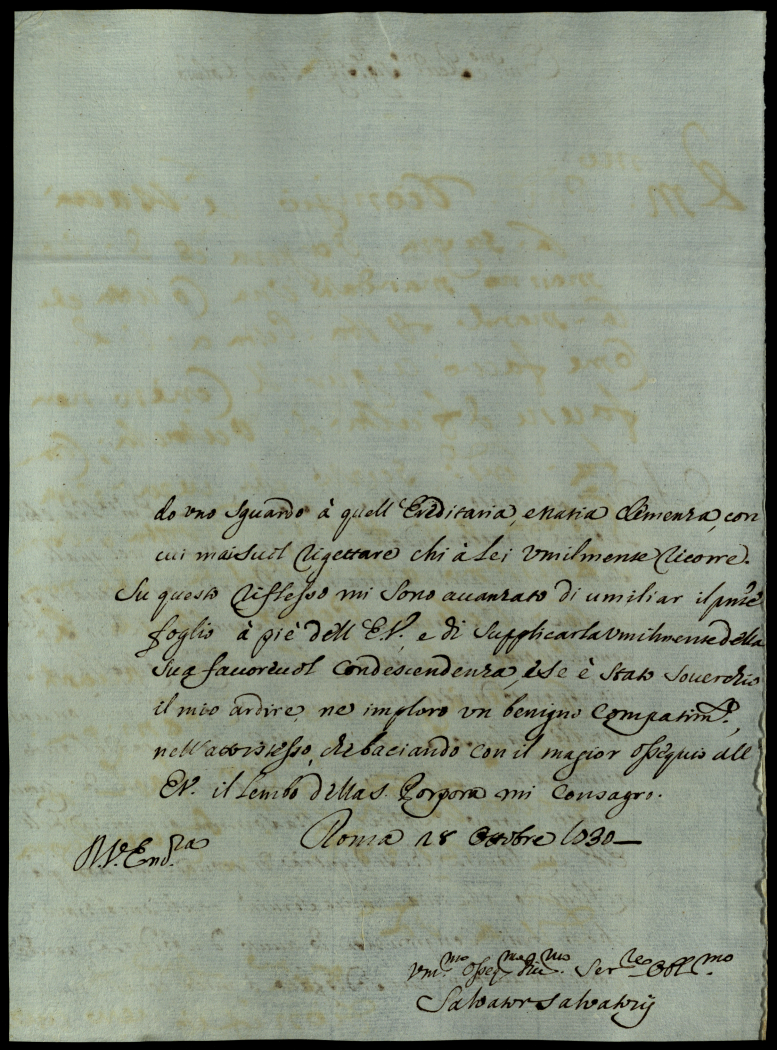 do uno sguardo à quell'Ereditaria, e natia Clemenza, con
cui mai suol rigettare chi à Lei umilmente ricorre.
Su questo riflesso mi sono auanzato di umiliar il pnte
foglio à piè dell'E.V., e di supplicarla umilmente della
sua fauoreuol condescendenza, e se è stato souerchio
il mio ardire, ne imploro un benigno compatimto,
nell'atto istesso, che baciando con il magior ossequio all'
E.V. il Lembo della S. Porpora mi consagro.
Roma 28 Ottobre 1030
Vmo Osseqmo Diumo Serre Obblmo
Saluator Saluatorij